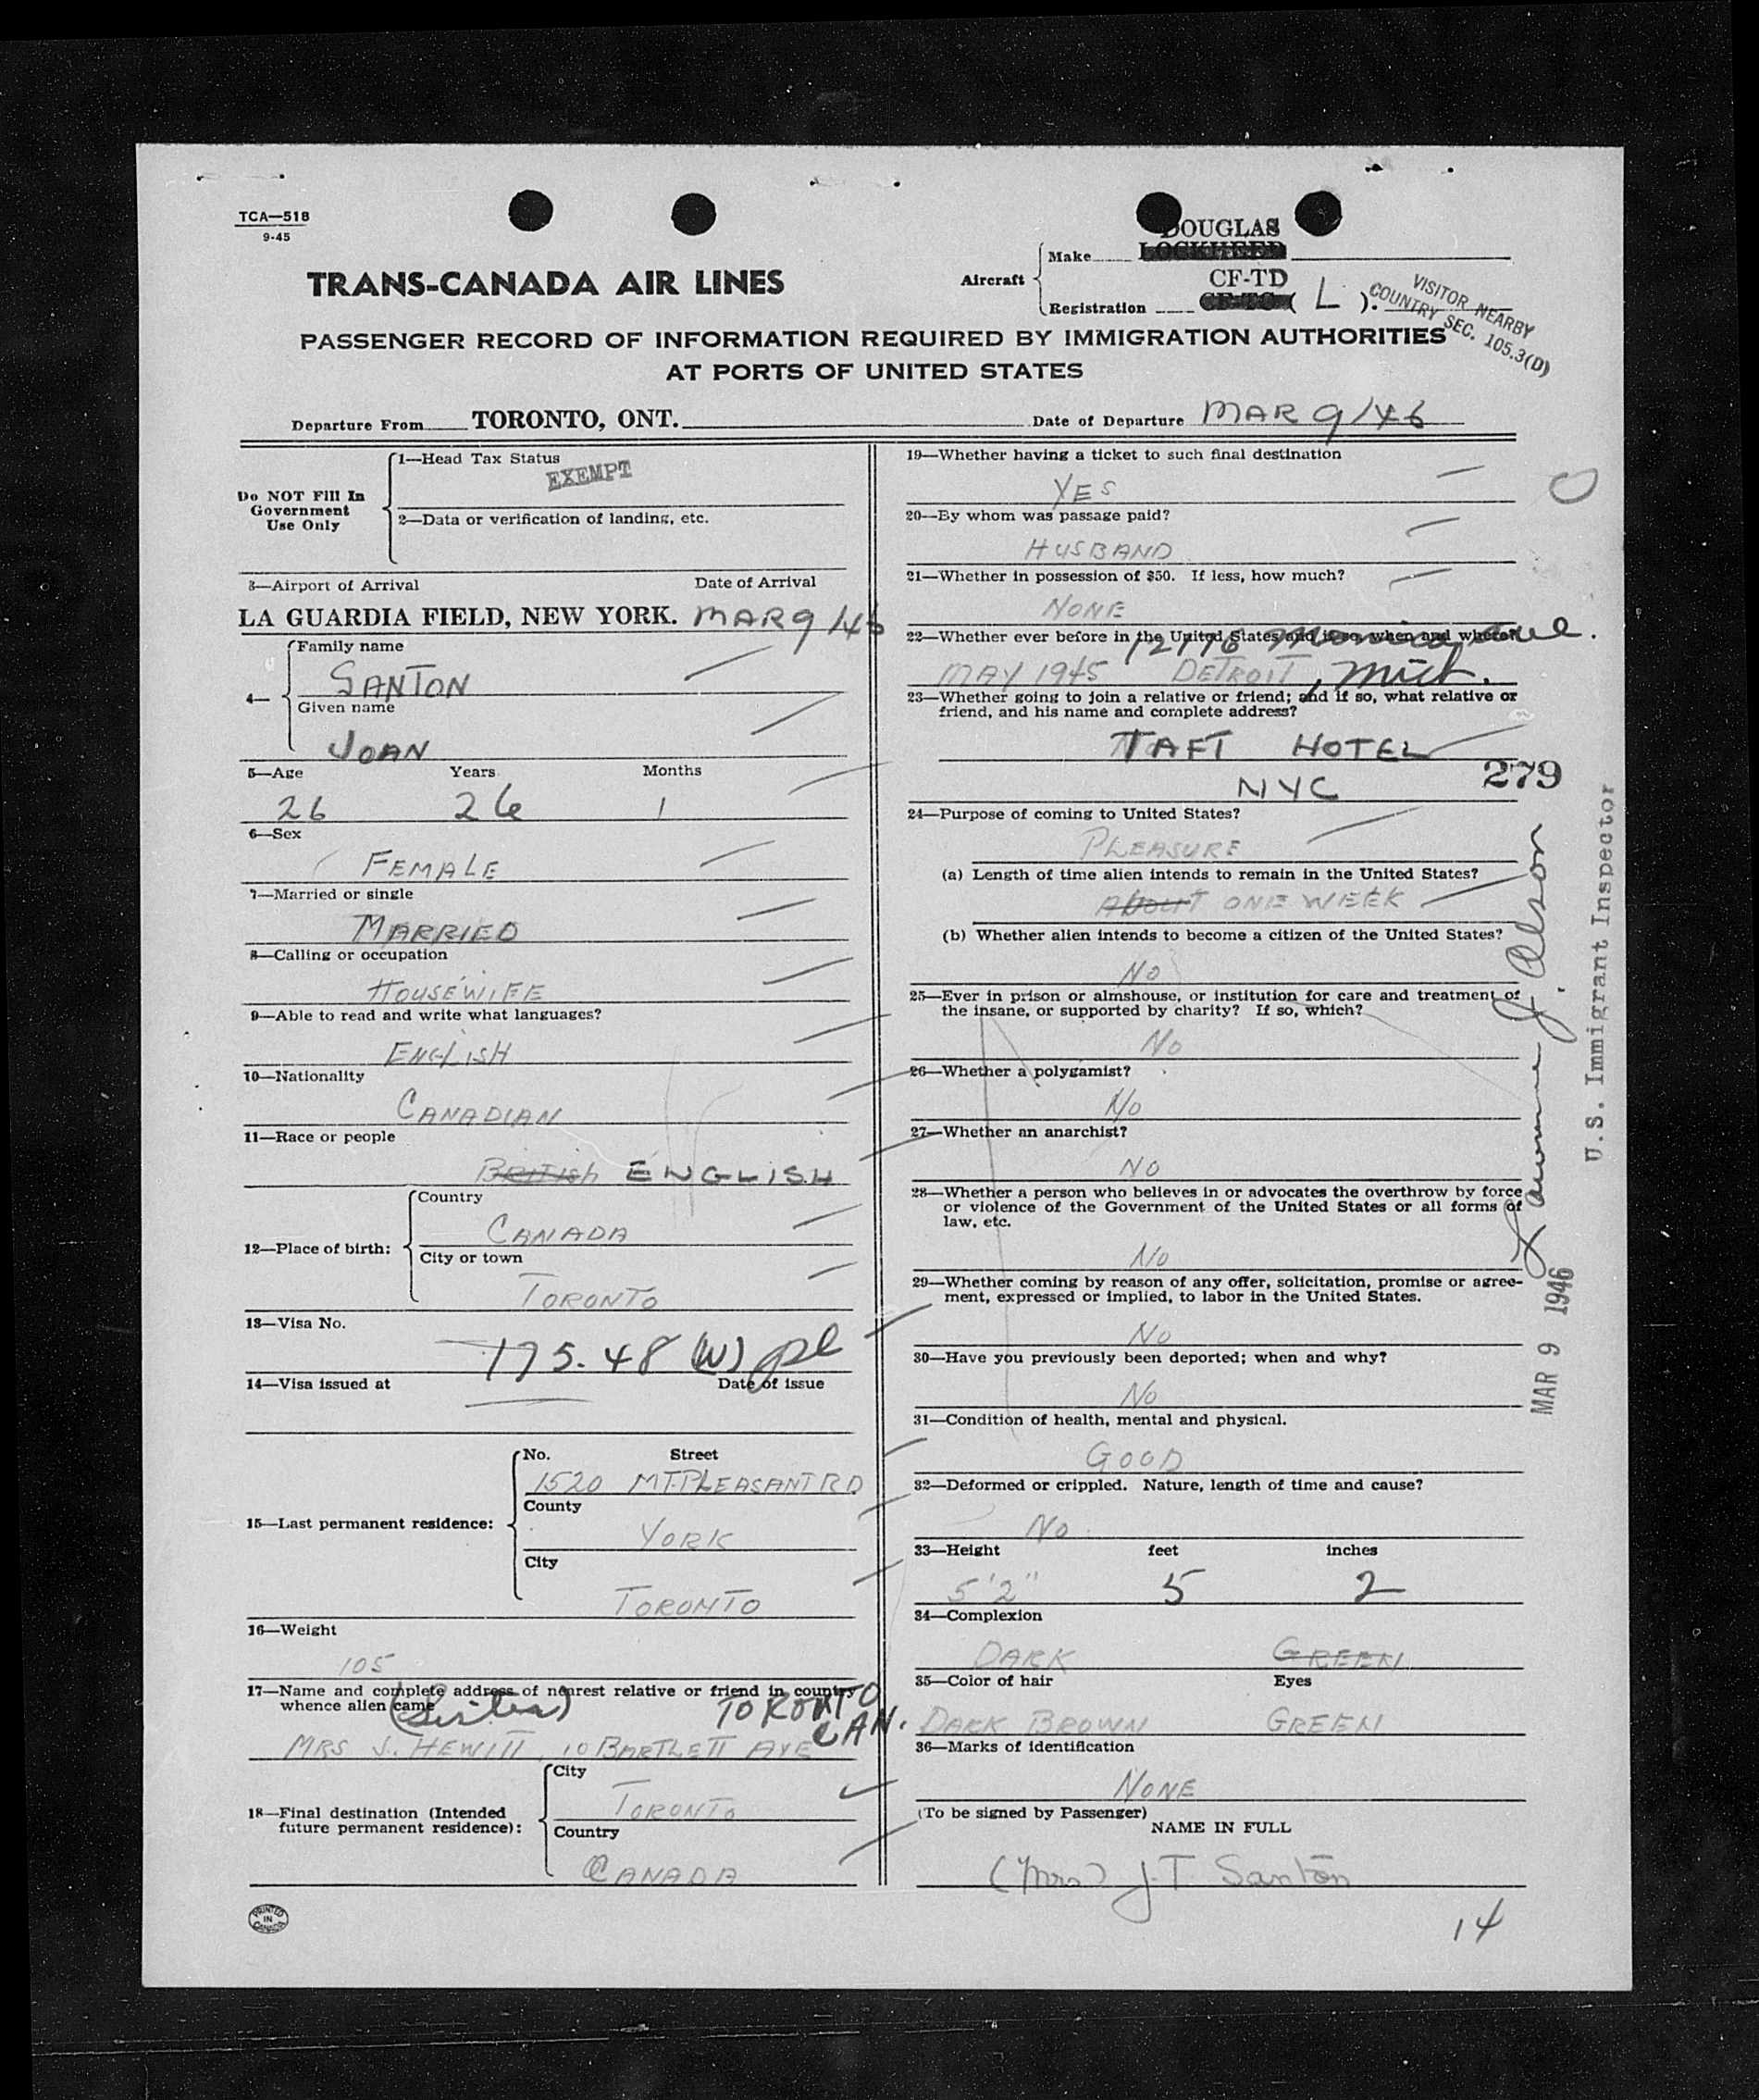 TCA—518
9-45
TRANS-CANADA AIR LINES
Aircraft
Make
DOUGLAS
LOCKHEED
Registration
CF-TD
CF-TC ( L ).
VISITOR NEARBY
COUNTRY SEC. 105.3(D)
PASSENGER RECORD OF INFORMATION REQUIRED BY IMMIGRATION AUTHORITIES
AT PORTS OF UNITED STATES
Departure From TORONTO, ONT. Date of Departure MAR 9/46
Do NOT Fill In
Government
Use Only
1—Head Tax Status
EXEMPT
2—Data or verification of landing, etc.
3—Airport of Arrival Date of Arrival
LA GUARDIA FIELD, NEW YORK. MAR 9/46
4—
Family name
SANTON
Given name
JOAN
5—Age Years Months
26 26 1
6—Sex
FEMALE
7—Married or single
MARRIED
8—Calling or occupation
HOUSEWIFE
9—Able to read and write what languages?
ENGLISH
10—Nationality
CANADIAN
11—Race or people
BRITISH ENGLISH
12—Place of birth:
Country
CANADA
City or town
TORONTO
13—Visa No.
175.48 (W)
14—Visa issued at Date of issue
15—Last permanent residence:
No. Street
1520 MT. PLEASANT RD
County
YORK
City
TORONTO
16—Weight
105
17—Name and complete address of nearest relative or friend in country
whence alien came
(Sister) TORONTO
CAN.
MRS J. HEWITT, 10 BARTLETT AVE
18—Final destination (Intended
future permanent residence):
City
TORONTO
Country
CANADA
PRINTED
IN
CANADA
19—Whether having a ticket to such final destination
YES
20—By whom was passage paid?
HUSBAND
21—Whether in possession of $50. If less, how much?
NONE
22—Whether ever before in the United States and if so, when and where?
12776 Monica Ave.
MAY 1945 DETROIT, Mich.
23—Whether going to join a relative or friend; and if so, what relative or
friend, and his name and complete address?
TAFT HOTEL
NYC
279
24—Purpose of coming to United States?
PLEASURE
(a) Length of time alien intends to remain in the United States?
ABOUT ONE WEEK
(b) Whether alien intends to become a citizen of the United States?
NO
25—Ever in prison or almshouse, or institution for care and treatment of
the insane, or supported by charity? If so, which?
NO
26—Whether a polygamist?
NO
27—Whether an anarchist?
NO
28—Whether a person who believes in or advocates the overthrow by force
or violence of the Government of the United States or all forms of
law, etc.
NO
29—Whether coming by reason of any offer, solicitation, promise or agree-
ment, expressed or implied, to labor in the United States.
NO
30—Have you previously been deported; when and why?
NO
31—Condition of health, mental and physical.
GOOD
32—Deformed or crippled. Nature, length of time and cause?
NO
33—Height feet inches
5'2" 5 2
34—Complexion
DARK GREEN
35—Color of hair Eyes
DARK BROWN GREEN
36—Marks of identification
NONE
(To be signed by Passenger)
NAME IN FULL
(Mrs) J.T. Santon
14
U.S. Immigrant Inspector
MAR 9 1946